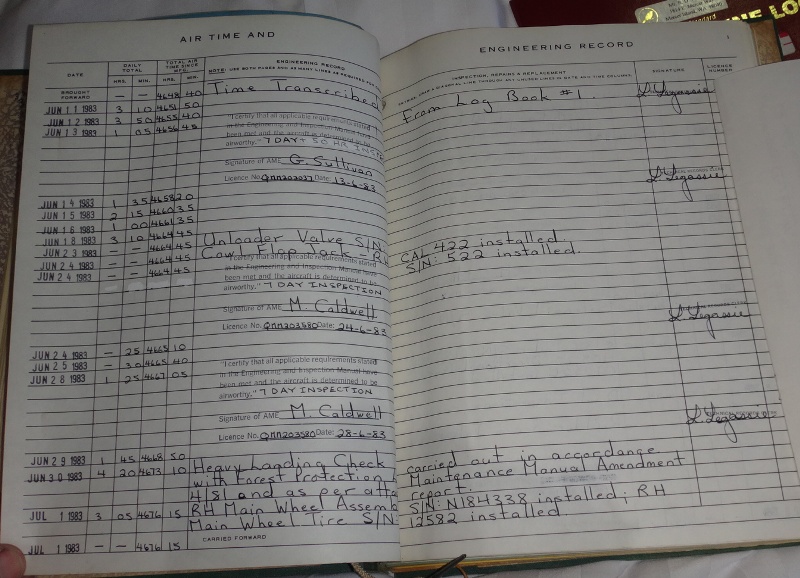 NE LO
AIR TIME AND
DATE
DAILY TOTAL
HRS. MIN.
TOTAL AIR TIME SINCE MFG.
HRS. MIN.
ENGINEERING RECORD
BROUGHT FORWARD — — 4648 40 Time Transcribed
JUN 11 1983 3 10 4651 50
JUN 12 1983 3 50 4655 40
JUN 13 1983 1 05 4656 45
"I certify that all applicable requirements stated
in the Engineering and Inspection Manual have
been met and the aircraft is determined to be
airworthy." 7 DAY + 50 HR INSPE
Signature of AME G. Sullivan
Licence No. QMM202037 Date: 13-6-83
JUN 14 1983 1 35 4658 20
JUN 15 1983 2 15 4660 35
JUN 16 1983 1 00 4661 35
JUN 18 1983 3 10 4664 45 Unloader Valve S/N
JUN 23 1983 — — 4664 45 Cowl Flap Jack - RH
JUN 24 1983 — — 4664 45
JUN 24 1983 — — 4664 45
"I certify that all applicable requirements stated
in the Engineering and Inspection Manual have
been met and the aircraft is determined to be
airworthy." 7 DAY INSPECTION
Signature of AME M. Caldwell
Licence No. QMM203580 Date: 24-6-83
JUN 24 1983 — 25 4665 10
JUN 25 1983 — 30 4665 40
JUN 28 1983 1 25 4667 05
"I certify that all applicable requirements stated
in the Engineering and Inspection Manual have
been met and the aircraft is determined to be
airworthy." 7 DAY INSPECTION
Signature of AME M. Caldwell
Licence No. QMM203580 Date: 28-6-83
JUN 29 1983 1 45 4668 50 Heavy Landing Check
JUN 30 1983 4 20 4673 10 with Forest Protection
4/81 and as per atta
JUL 1 1983 3 05 4676 15 RH Main Wheel Assemb
Main Wheel Tire S/N:
JUL 1 1983 — — 4676 15
CARRIED FORWARD
ENGINEERING RECORD
INSPECTION, REPAIRS & REPLACEMENT
SIGNATURE
LICENCE NUMBER
from Log Book #1 L. Legassie
L. Legassie
CAL 422 installed.
S/N: 522 installed.
L. Legassie
L. Legassie
carried out in accordance
Maintenance Manual Amendment
report.
S/N: N184338 installed; RH
12582 installed